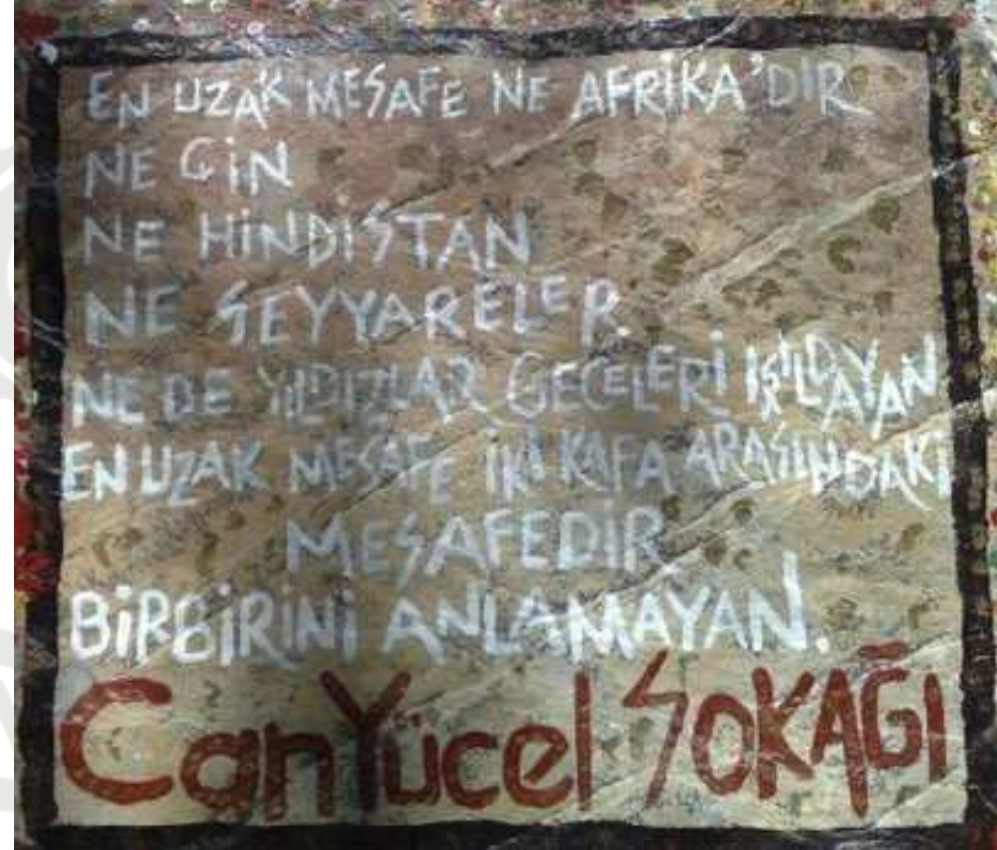 EN UZAK MESAFE NE AFRİKA'DIR
NE ÇİN
NE HİNDİSTAN
NE SEYYARELER
NE DE YILDIZLAR GECELERİ IŞILDAYAN
EN UZAK MESAFE İKİ KAFA ARASINDAKİ
MESAFEDİR
BİRBİRİNİ ANLAMAYAN.
Can Yücel SOKAĞI